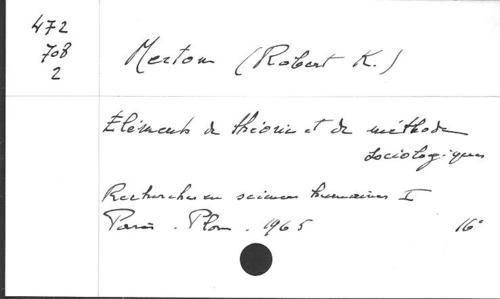 472
708
2
Merton (Robert K.)
Eléments de théorie et de méthode
sociologiques
Recherches en sciences humaines I
Paris. Plon. 1965 16°